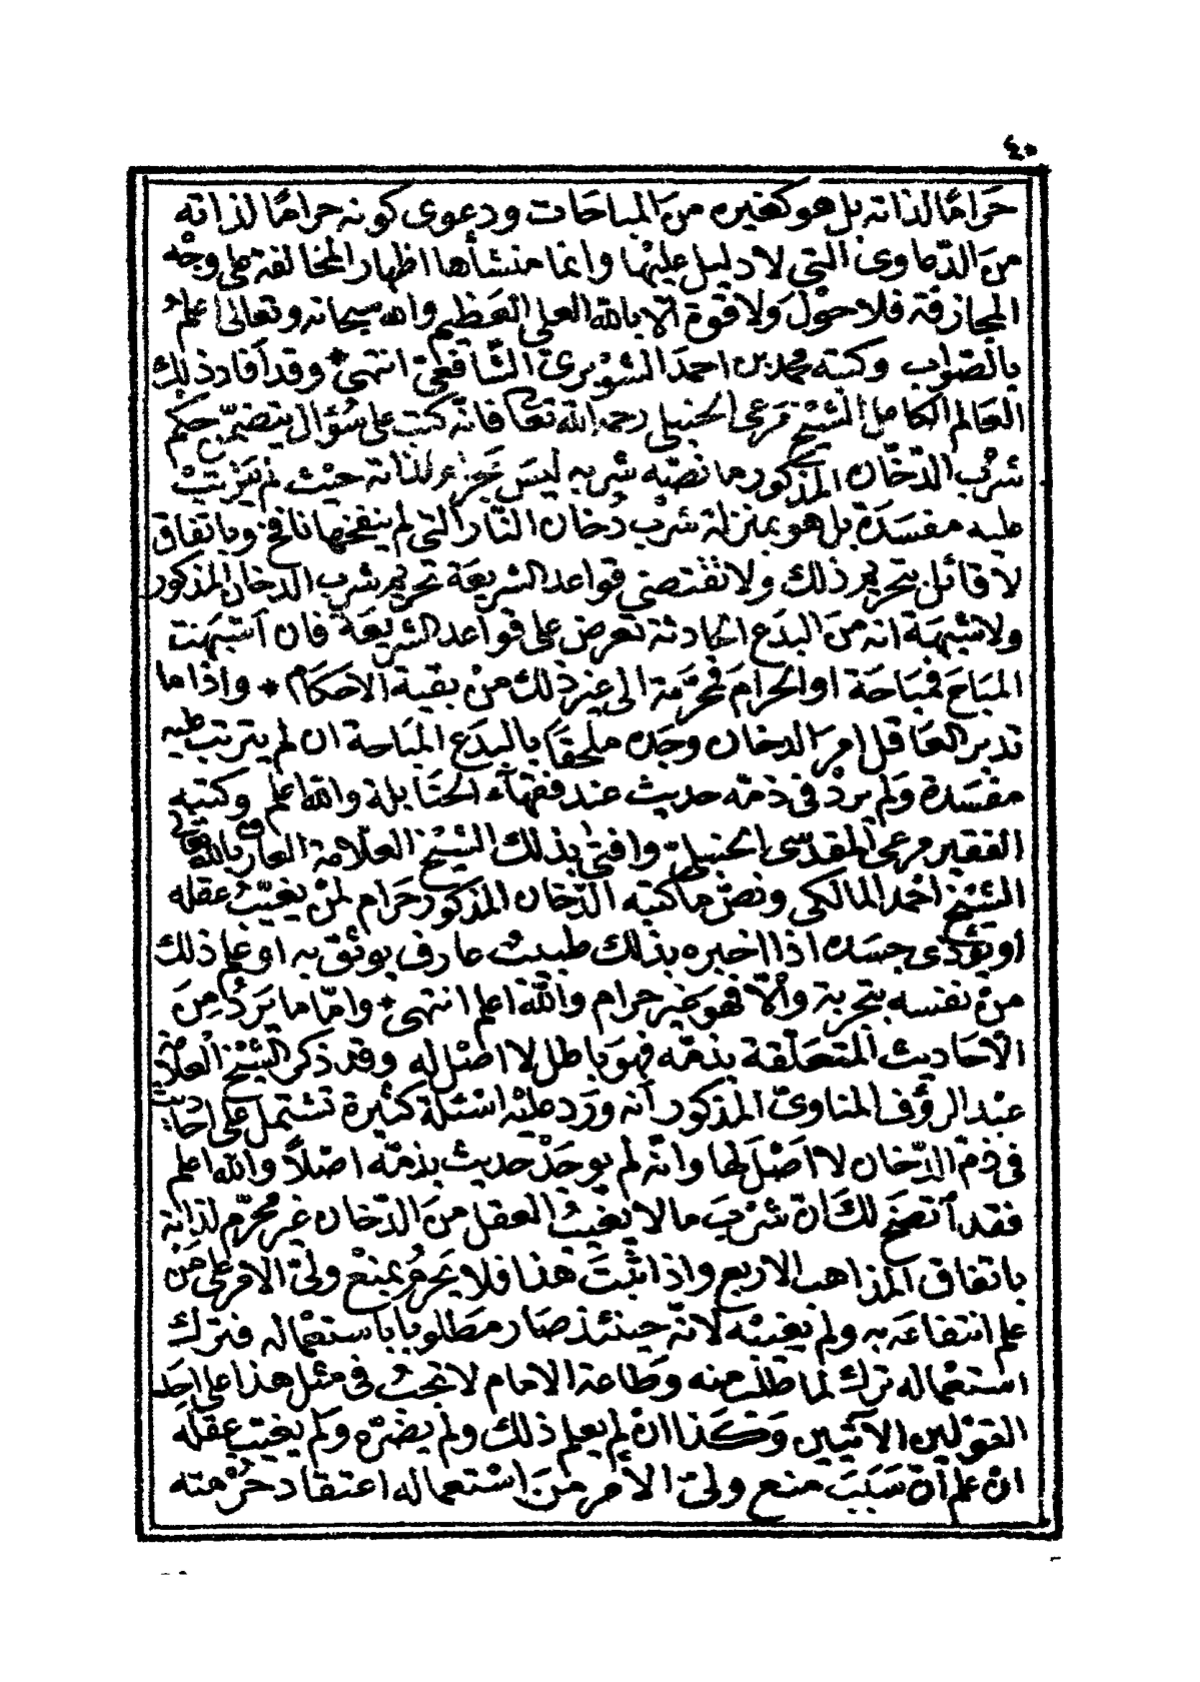 ٤٠
حَرامًا لذاته بل هو كغيره منَ المباحَات ودعوى كونه حرامًا لذاته
منَ الدّعاوى التي لا دليل عليْها وانما منشأها اظهار المخالفة على وجْه
المجازفة فلا حوْل وَلا قوة الا بالله العلي العَظيم والله سبحانه وتعالى اعلمُ
بالصّواب وكتبه محمد بن احمدَ الشوبرى الشّافعىّ انتهى * وقد أفاد ذلك
العَالم الكامل الشيْخ مَرعى الحنبلى رحمه الله تعَالى فانّه كتب على سُؤال يتضمّن حكم
شرْب الدّخان المذكور ما نصّه شربه ليسَ بمحرم لذاته حيْث لم يترتبْ
عليه مفسَدة بل هو بمنزلة شرْب دُخان النّار التى لم ينفخها نافخ وباتفاق
لا قائل بتحريم ذلك ولا تقتضى قواعد الشريعَة تحريم شرب الدخان المذكور
ولا شبهَة انه منَ البدَع الحادثة تعرض على قواعد الشريعَة فان اشبهَت
المبَاحَ فمبَاحَة او الحرامَ فمحرّمة الى غير ذلك منْ بقية الاحكام * واذا ما
تدبر العَاقل امر الدخان وجَده ملحقًا بالبدَع المبَاحة ان لم يترتب عليه
مفسَدة وَلم يردْ فى ذمّه حديث عند فقهآء الحنَابلة والله اعلم وكتبه
الفقير مرعى المقدسى الحنبلىّ وافتى بذلك الشيْخ العلّامة العارف بالله تعالى
الشيْخ احمد المالكى ونصّ ما كتبه الدّخان المذكور حَرام لمنْ يغيّبُ عقله
او يؤذى جسَده اذا اخبره بذلك طبيبٌ عارف يوثق به او علم ذلك
منْ نفسه بتجربة والّا فهو غير حرام والله اعلم انتهى * وامّا ما يَردُ مِنَ
الأحَاديث المتعَلّقة بذمّه فهوَ باطل لا اصْل له وقد ذكر الشيْخ العلّامة
عبْد الرؤف المناوىّ المذكور أنه ورَد عليْه اسْئلة كثيرة تشتمل على احَاديث
فى ذمّ الدّخان لا اصْلَ لها وانّه لم يوجَدْ حديث بذمّه اصْلاً والله اعلم
فقد اتضحَ لكَ ان شرْبَ ما لا يغيبُ العقل منَ الدّخان غير محرّم لذاته
باتفاق المذاهب الاربع واذا ثبتَ هَذا فلا يَحرُمُ بمنْع ولىّ الامر على مَن
علم انتفاعَه به ولم يغيبْه لانّه حينئذ صَار مَطلوبا باستعْماله فترْك
استعْماله ترْك لما طلب منه وَطاعة الامام لا تجبُ فى مثل هذا على احَد
القوْلين الآتيَين وَكَذا ان لم يعلم ذلك ولم يضرّه وَلم يغيّب عقله
انْ علم أنّ سَبَبَ منع ولىّ الأمر منَ اسْتعماله اعتقاد حُرْمته